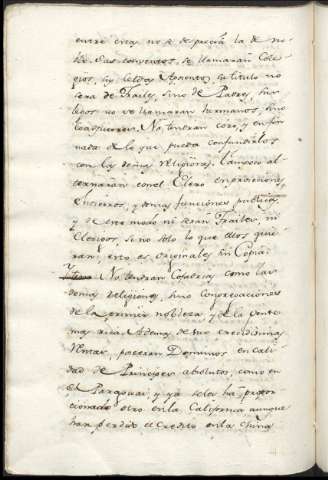 entre ellas no se despreciá la de no-
ble. Sus conventos, se llamarán Cole-
gios, sus celdas Aposentos, su titulo no
será de Frailes, sino de Padres, sus
Legos no se llamarán hermanos, sino
Coadjutores. No tendran coro, y en fin
nada de lo que pueda confundirlos
con las demas religiones. Tampoco al-
ternarán con el Clero en procesiones,
Entierros, y demas funciones publicas,
y de este modo ni serán Frailes, ni
Clerigos, si no solo lo que ellos quie-
ran, esto es originales sin Copia.
No tendrán Cofadrias como las
demas religiones, sino congregaciones
de la primer nobleza, y de la gente
mas rica. Ademas de sus crecidisimas
Rentas, poseeran Dominios en cali-
dad de Principes absolutos, como en
el Paraguai, y ya se les ha propor-
cionado otro en la California aunque
han perdido el credito en la China